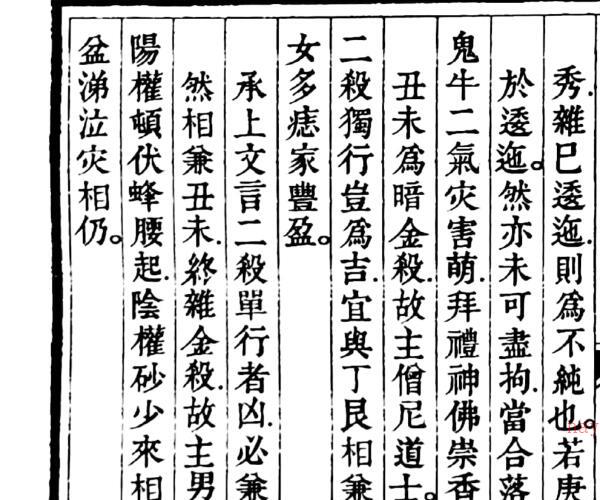 秀.雜巳逶迤.則爲不純也。若庚
於逶迤。然亦未可盡拘.當合落
鬼牛二氣灾害萌.拜禮神佛崇香
丑未爲暗金殺.故主僧尼道士。
二殺獨行豈爲吉.宜與丁艮相兼
女多痣家豐盈。
承上文言二殺單行者凶.必兼
然相兼丑未.終雜金殺.故主男
陽權頓伏蜂腰起.陰權砂少來相
盆涕泣灾相仍。